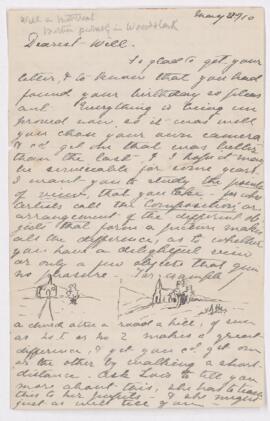 Will in Montreal
Mother in Woodstock
May 28/10
Dearest Will.
So glad to get your
letter, & to know that you had
found your birthday so pleas
ant. Everything is being im
proved now, so it was well
you chose your own camera,
& cd get one that was better
than the last. & I hope it may
be serviceable for some years.
I want you to study the points
of view, that you take – for what
artists call the composition or
arrangement of the different ob
jects that form a picture makes
all the difference, as to whether
you have a delightful view
or only a few objects that give
no pleasure. For example
a church & tree & road & hill, if seen
as No 1 or No 2 makes a great
difference, & yet you cd get one
or the other by walking a short
distance. Ask to tell you
more about this, she has to teach
this to her pupils – & she might
just as well tell you